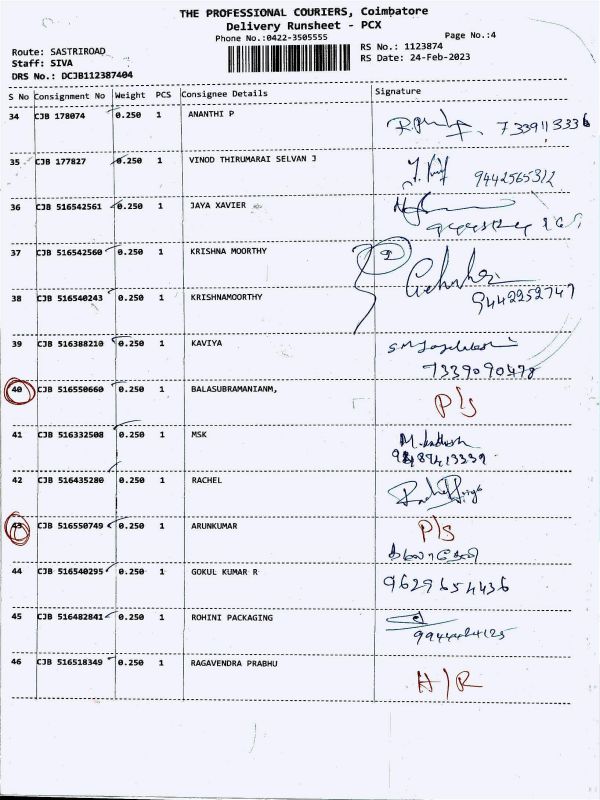 THE PROFESSIONAL COURIERS, Coimbatore
Delivery Runsheet - PCX
Phone No.:0422-3505555
Page No.:4
Route: SASTRIROAD
RS No.: 1123874
Staff: SIVA
RS Date: 24-Feb-2023
DRS No.: DCJB112387404
S No Consignment No Weight PCS Consignee Details Signature
34 CJB 178074 0.250 1 ANANTHI P
7339113336
35 CJB 177827 0.250 1 VINOD THIRUMARAI SELVAN J
9442565312
36 CJB 516542561 0.250 1 JAYA XAVIER
37 CJB 516542560 0.250 1 KRISHNA MOORTHY
38 CJB 516540243 0.250 1 KRISHNAMOORTHY
9442252747
39 CJB 516388210 0.250 1 KAVIYA
7339090478
40 CJB 516550660 0.250 1 BALASUBRAMANIANM,
P/S
41 CJB 516332508 0.250 1 MSK
42 CJB 516435280 0.250 1 RACHEL
43 CJB 516550749 0.250 1 ARUNKUMAR
P/S
44 CJB 516540295 0.250 1 GOKUL KUMAR R
9629654436
45 CJB 516482841 0.250 1 ROHINI PACKAGING
9944424125
46 CJB 516518349 0.250 1 RAGAVENDRA PRABHU
H/R